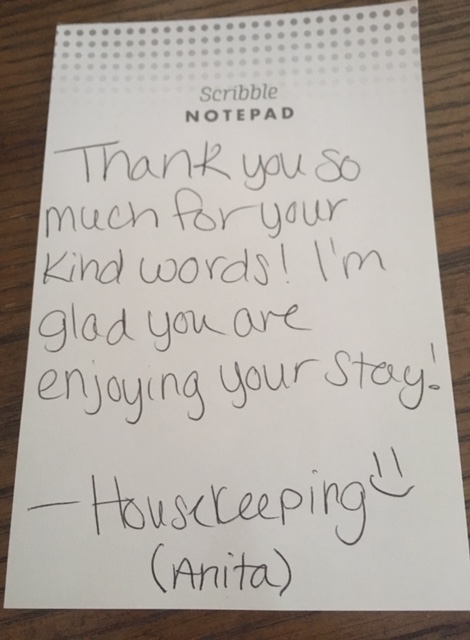 Scribble
NOTEPAD
Thank you so
much for your
kind words! I'm
glad you are
enjoying your stay!
— Housekeeping
(Anita)